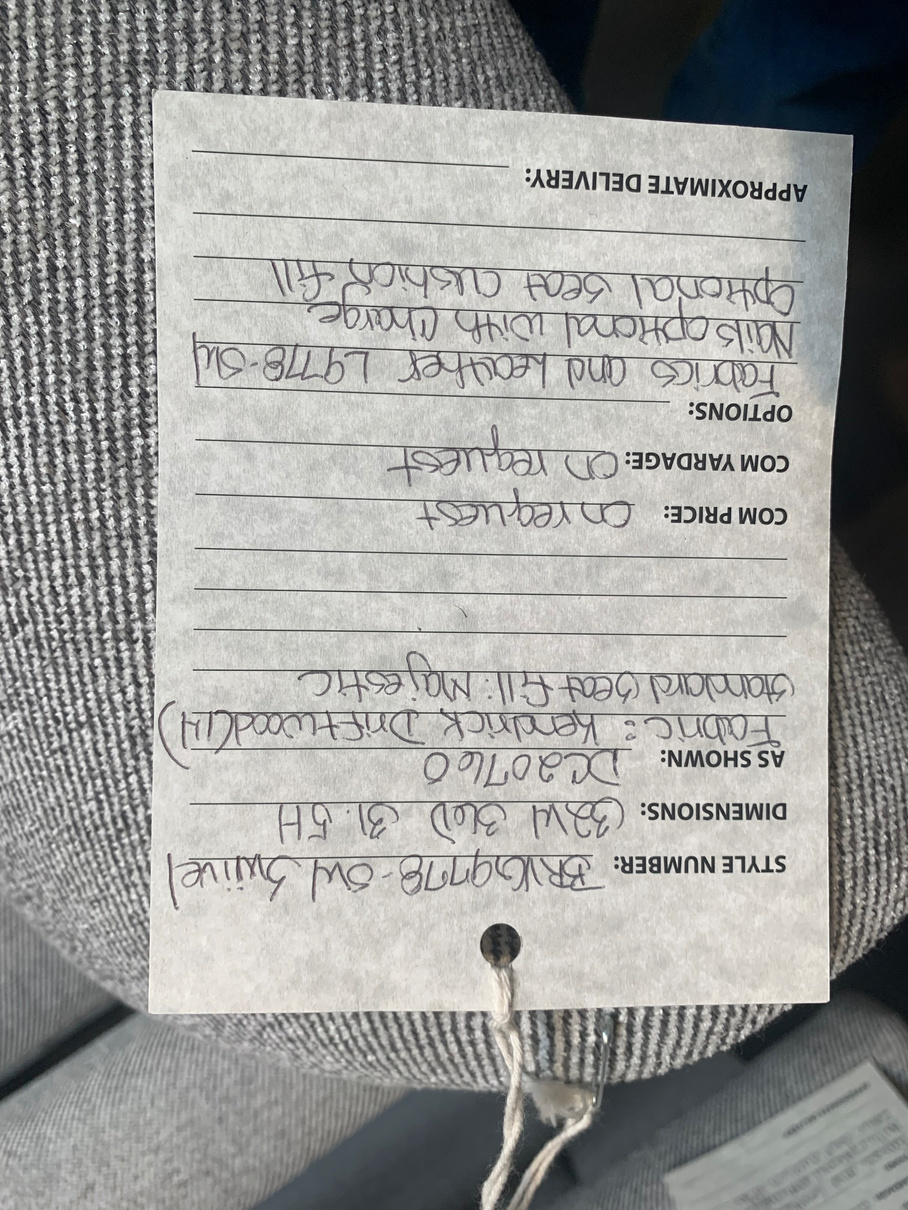 STYLE NUMBER: BRNG9778-SW Swivel
DIMENSIONS: (32W 36D 31.5H
AS SHOWN: DC20760
Fabric: Kendrick Driftwood(14)
Standard Seat fill: Majestic
COM PRICE: on request
COM YARDAGE: on request
OPTIONS:
Fabrics and Leather L9778-SW
Nails optional with charge
Optional Seat cushion fill
APPROXIMATE DELIVERY: